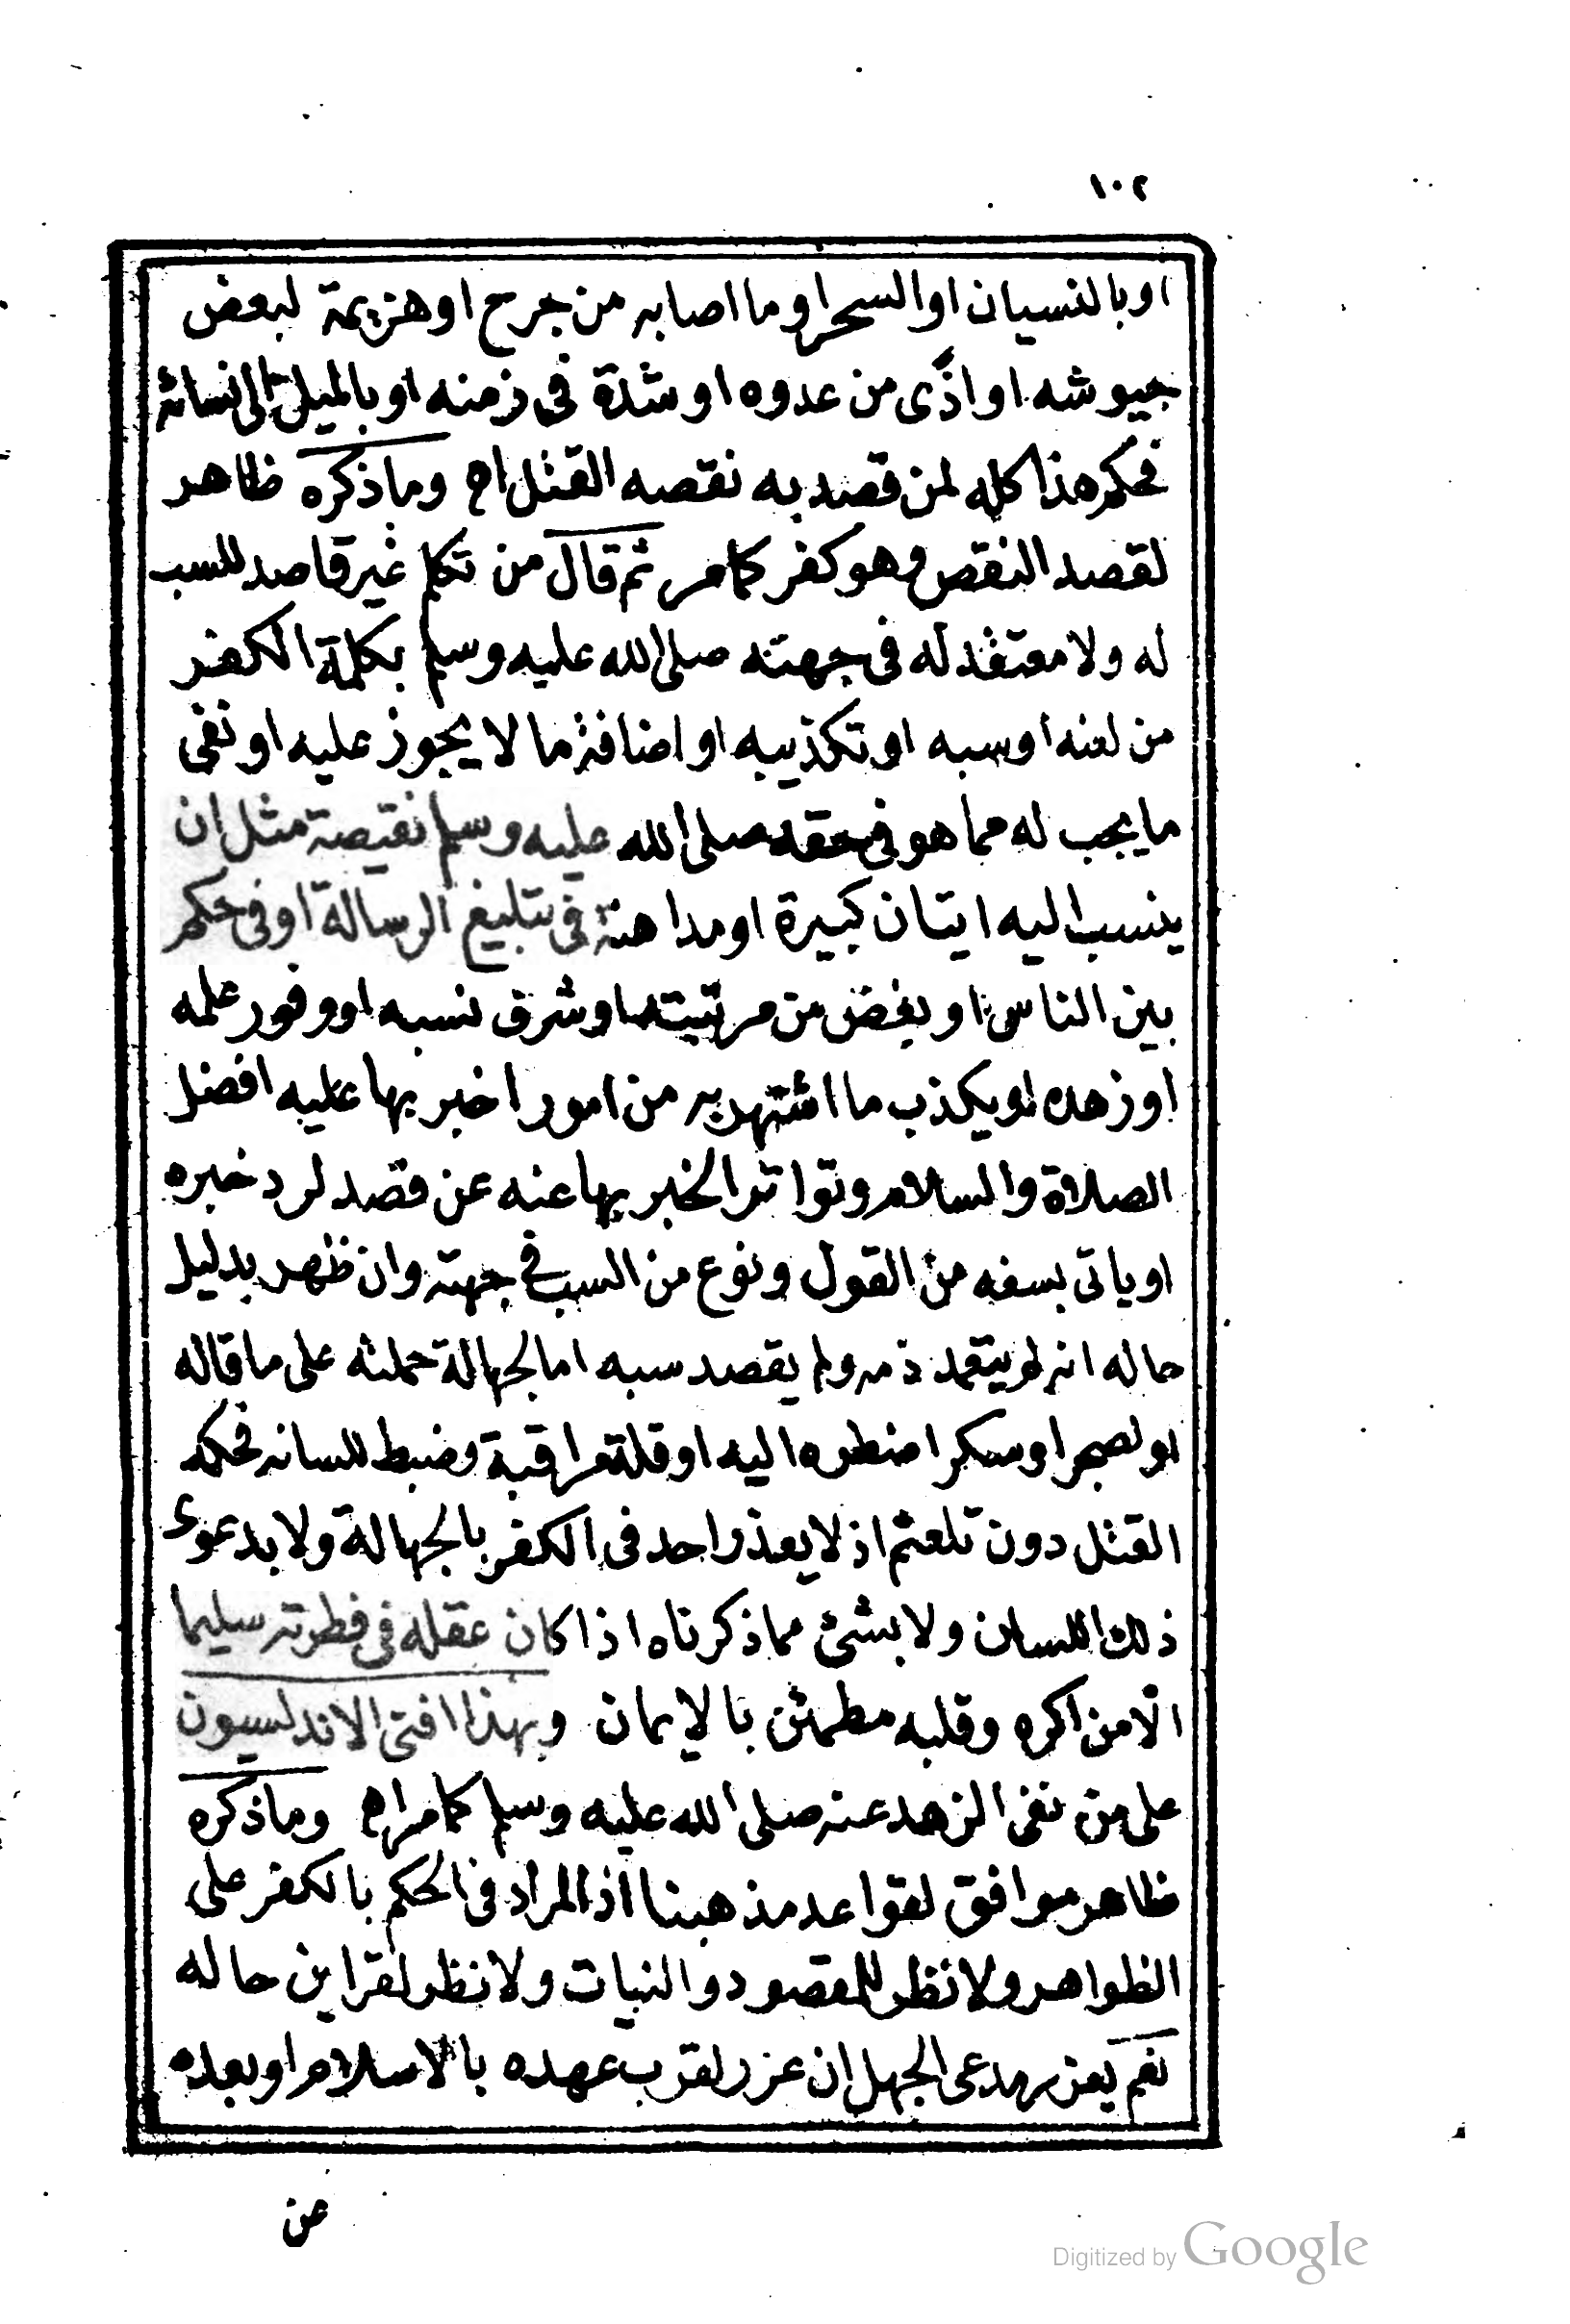 ١٠٢
او بالنسيان او السحر او ما اصابه من جرح او هزيمة لبعض
جيوشه او اذًى من عدوه او شدة فى زمنه او بالميل الى نسائه
فحكم هذا كله لمن قصد به نقصه القتل اه وما ذكره ظاهر
لقصد النقص وهو كفر كما مر ثم قال من تكلم غير قاصد للسب
له ولا معتقد له فى جهته صلى الله عليه وسلم بكلمة الكفر
من لعنه او سبه او تكذيبه او اضافة ما لا يجوز عليه او نفى
ما يجب له مما هو فى حقه صلى الله عليه وسلم نقيصة مثل ان
ينسب اليه اتيان كبيرة او مداهنة فى تبليغ الرسالة او فى حكم
بين الناس او يغض من مرتبته او شرف نسبه او وفور علمه
او زهده او يكذب ما اشتهر به من امور اخبر بها عليه افضل
الصلاة والسلام وتواتر الخبر بها عنه عن قصد لرد خبره
او ياتى بسفه من القول ونوع من السب فى جهته وان ظهر بدليل
حاله انه لم يتعمد ذمه ولم يقصد سبه اما لجهالة حملته على ما قاله
او لضجر او سكر اضطره اليه او قلة مراقبة وضبط للسانه فحكمه
القتل دون تلعثم اذ لا يعذر احد فى الكفر بالجهالة ولا بدعوى
ذلك اللسان ولا بشئ مما ذكرناه اذا كان عقله فى فطرته سليما
الّا من اكره وقلبه مطمئن بالايمان وبهذا افتى الاندلسيون
على من نفى الزهد عنه صلى الله عليه وسلم كما مر اه وما ذكره
ظاهر موافق لقواعد مذهبنا اذ المراد فى الحكم بالكفر على
الظواهر ولا نظر للمقصود والنيات ولا نظر لقراين حاله
نعم يعذر مدعى الجهل ان عذر لقرب عهده بالاسلام او بعده
عن
Digitized by Google